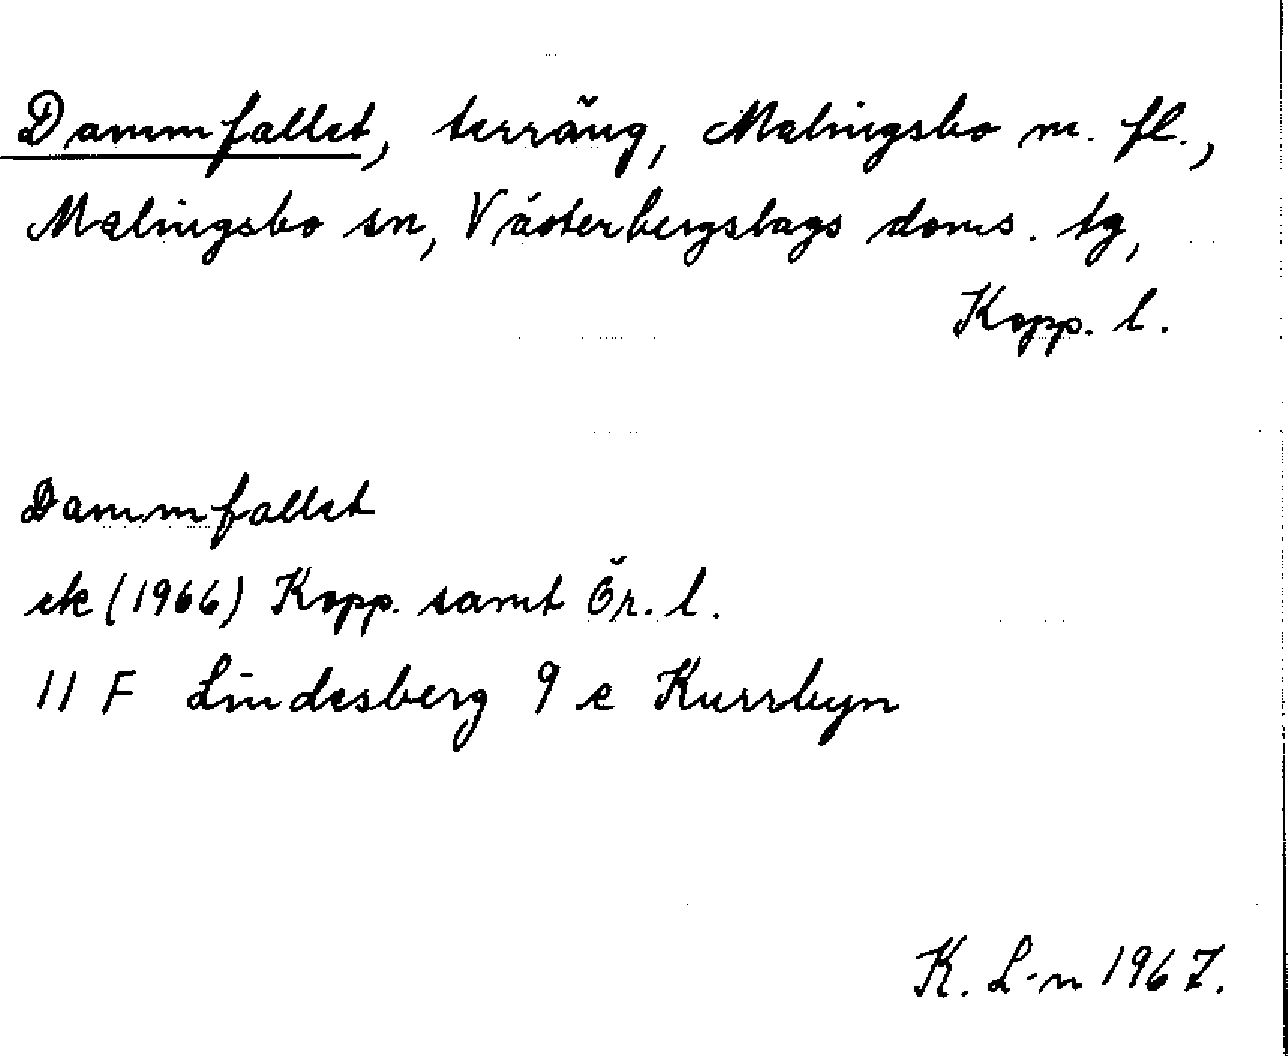 Dammfallet, terräng, Malingsbo m. fl.,
Malingsbo sn, Västerbergslags doms. tg,
Kopp. l.
Dammfallet
ek (1966) Kopp. samt Ör. l.
11 F Lindesberg 9 e Kurrbyn
K. L-n 1967.